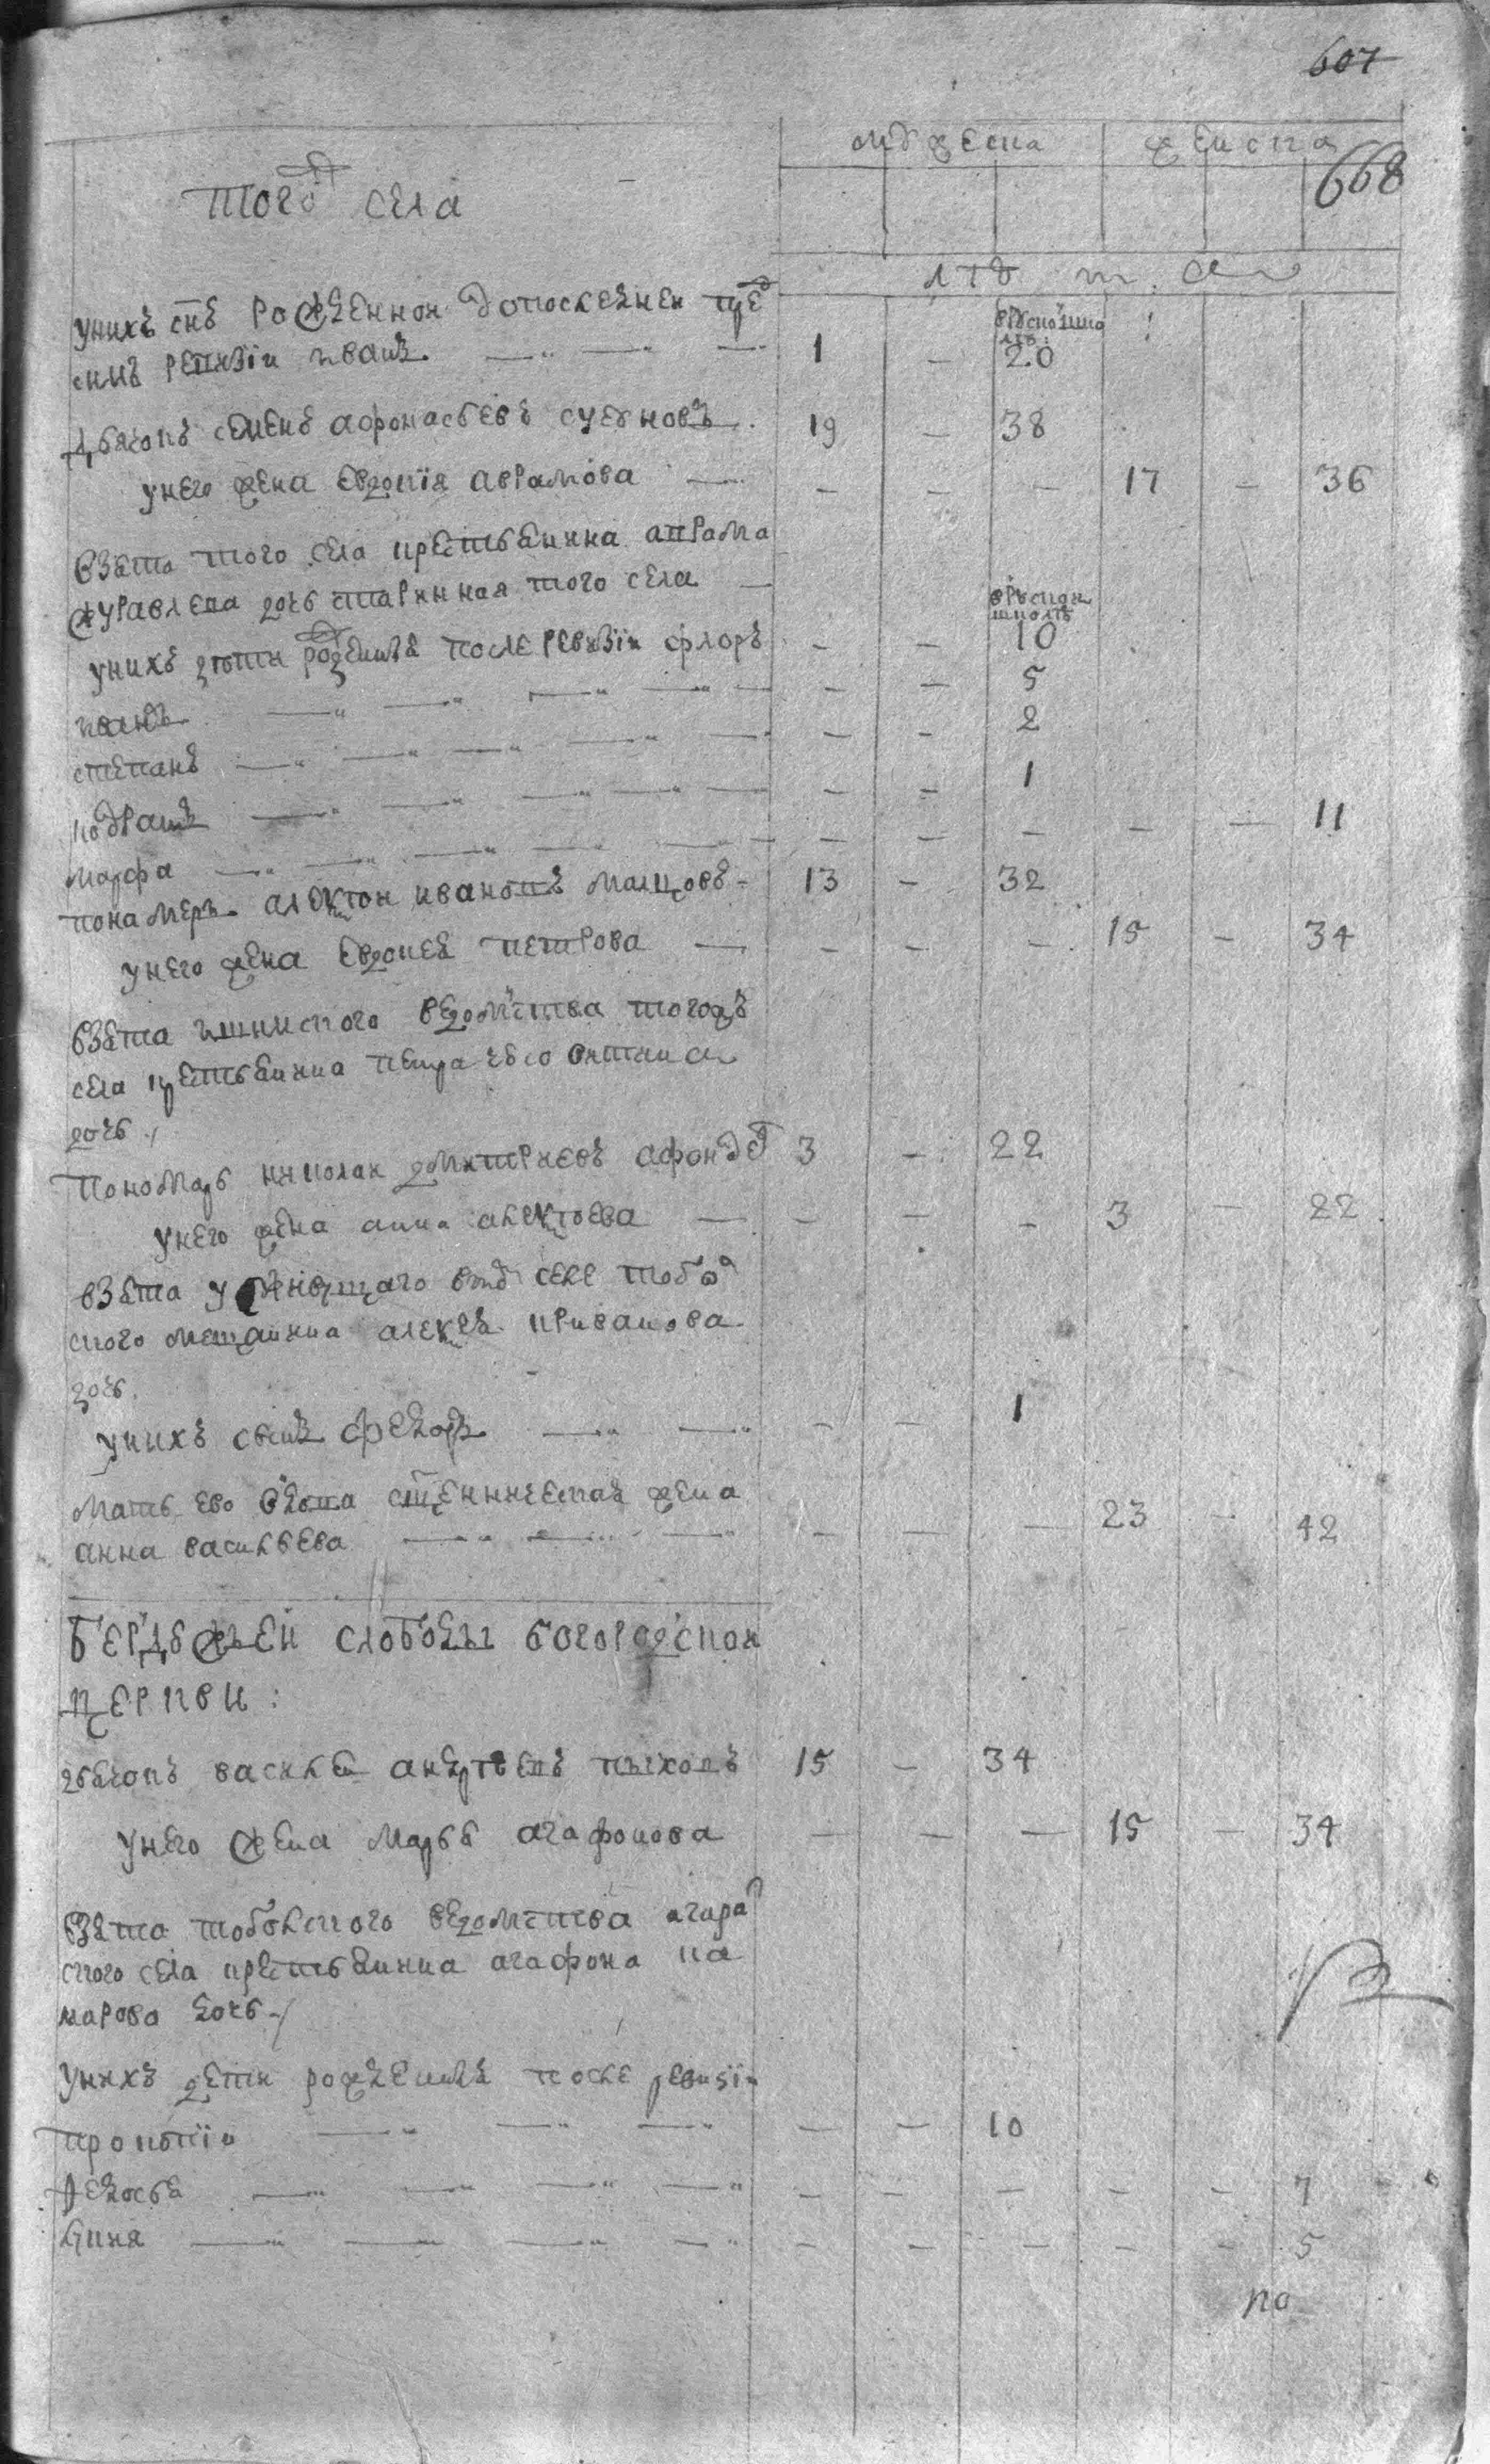 607
мужеска женска
668
Того села
лѣта
унихъ снъ рожденной допоследней пред
симъ ревизiи иванъ 1 - 20
Дьячокъ семенъ афонасьевъ 19 - 38
унего жена евдокiя аврамова - - - 17 - 36
взята того села крестьянина аврама
журавлева дочь старинная того села
унихъ дети рожденыя после ревизiи флоръ - - 10
иванъ - - 5
степанъ - - 2
кодратъ - - 1
марфа - - - - - 11
понамеръ алексей ивановъ 13 - 32
унего жена евдокея петрова - - - 15 - 34
взята ишимского ведомства тогожъ
села крестьянина петра
дочь
Пономарь николай дмитриевъ 3 - 22
унего жена анна алексеева - - - 3 - 22
взята у живущаго втом селе тобол
ского мещанина алексея приванова
дочь
унихъ сынъ федоръ - - 1
мать ево вдова священническая жена
анна васильева - - - 23 - 42
Бердюжьей слободы богородской
церкви:
дьячокъ василей андреевъ пыховъ 15 - 34
унего жена марья агафонова - - - 15 - 34
взята тобольского ведомства
ского села крестьянина агафона ма
карова дочь
Унихъ дети рожденыя после ревизiи
прокопiи - - 10
федосья - - - - - 7
анна - - - - - 5
по